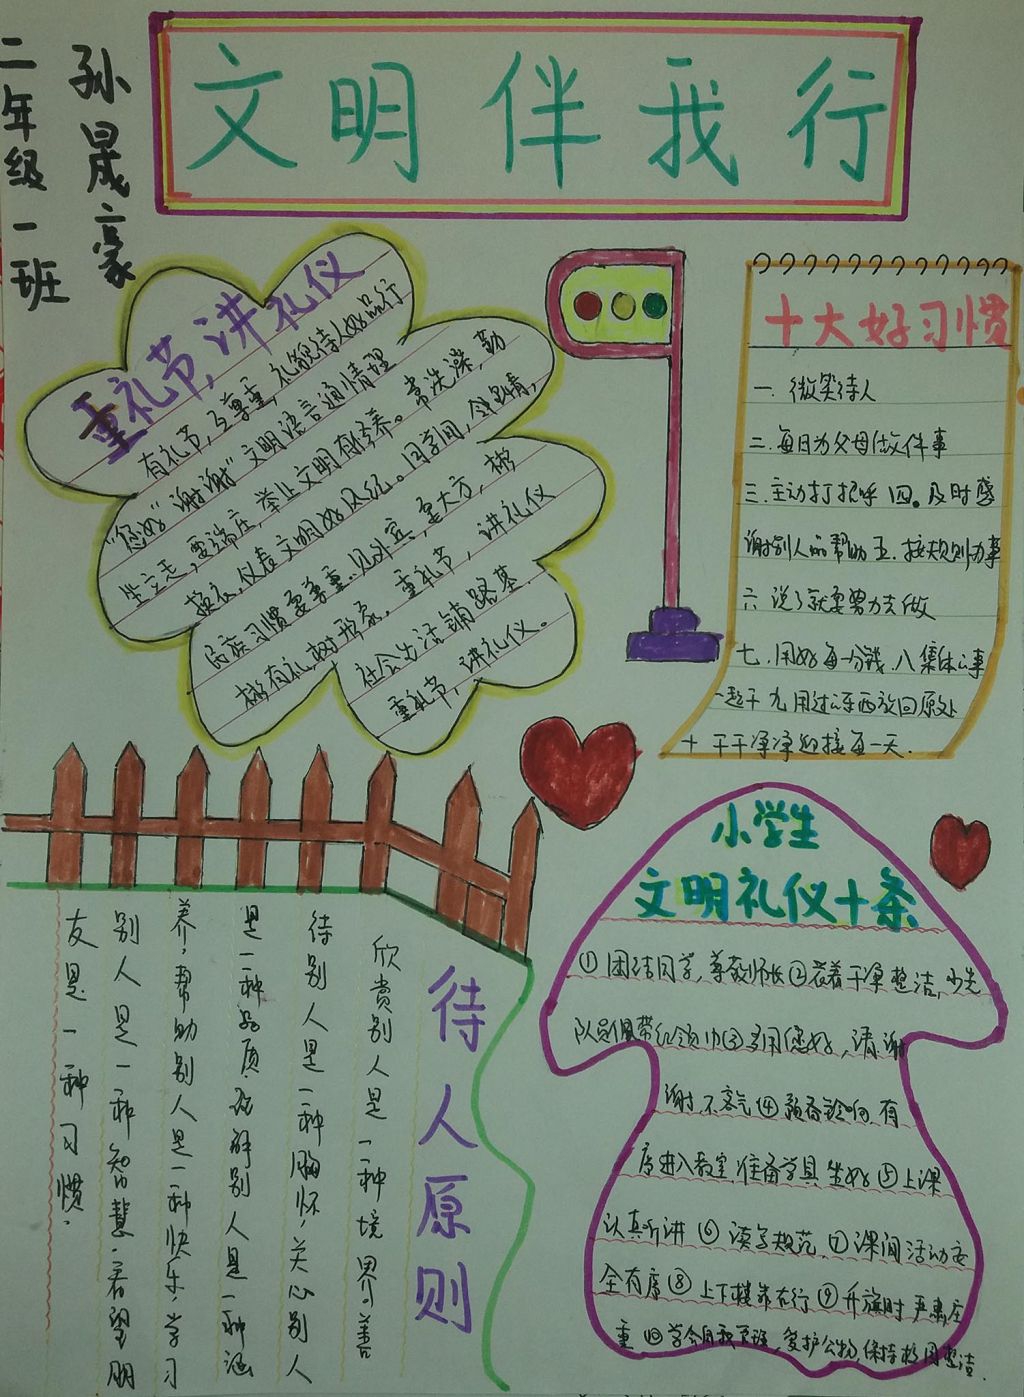 二年级一班
孙晟豪
文明伴我行
重礼节,讲礼仪
有礼节,互尊重,礼貌待人好品行
“您好”“谢谢”文明语言通情理
坐立走,要端庄,举止文明有修养。常洗澡,勤
换衣,仪表文明好风纪。同学间,邻里情,
民族习惯要尊重.见外宾,要大方,彬
彬有礼树形象。重礼节,讲礼仪
社会生活铺路基.
重礼节,讲礼仪。
十大好习惯
一.微笑待人
二.每日为父母做件事
三.主动打招呼 四。及时感
谢别人的帮助 五.按规则办事
六 说了就要努力去做
七.用好每一分钱.八集体的事
一起干 九用过的东西放回原处
十 干干净净迎接每一天.
待人原则
欣赏别人是一种境界。善
待别人是一种胸怀,关心别人
是一种品质.理解别人是一种涵
养,帮助别人是一种快乐.学习
别人是一种智慧.看望朋
友是一种习惯.
小学生
文明礼仪十条
①团结同学,尊敬师长②衣着干净整洁,少先
队员佩带红领巾③多用您好,请,谢
谢,不客气④预备铃响,有
序进入教室,准备学具坐好⑤上课
认真听讲⑥读写规范.⑦课间活动安
全有序⑧上下楼靠右行⑨升旗时严肃庄
重.⑩学会自我管理,爱护公物,保持校园整洁.